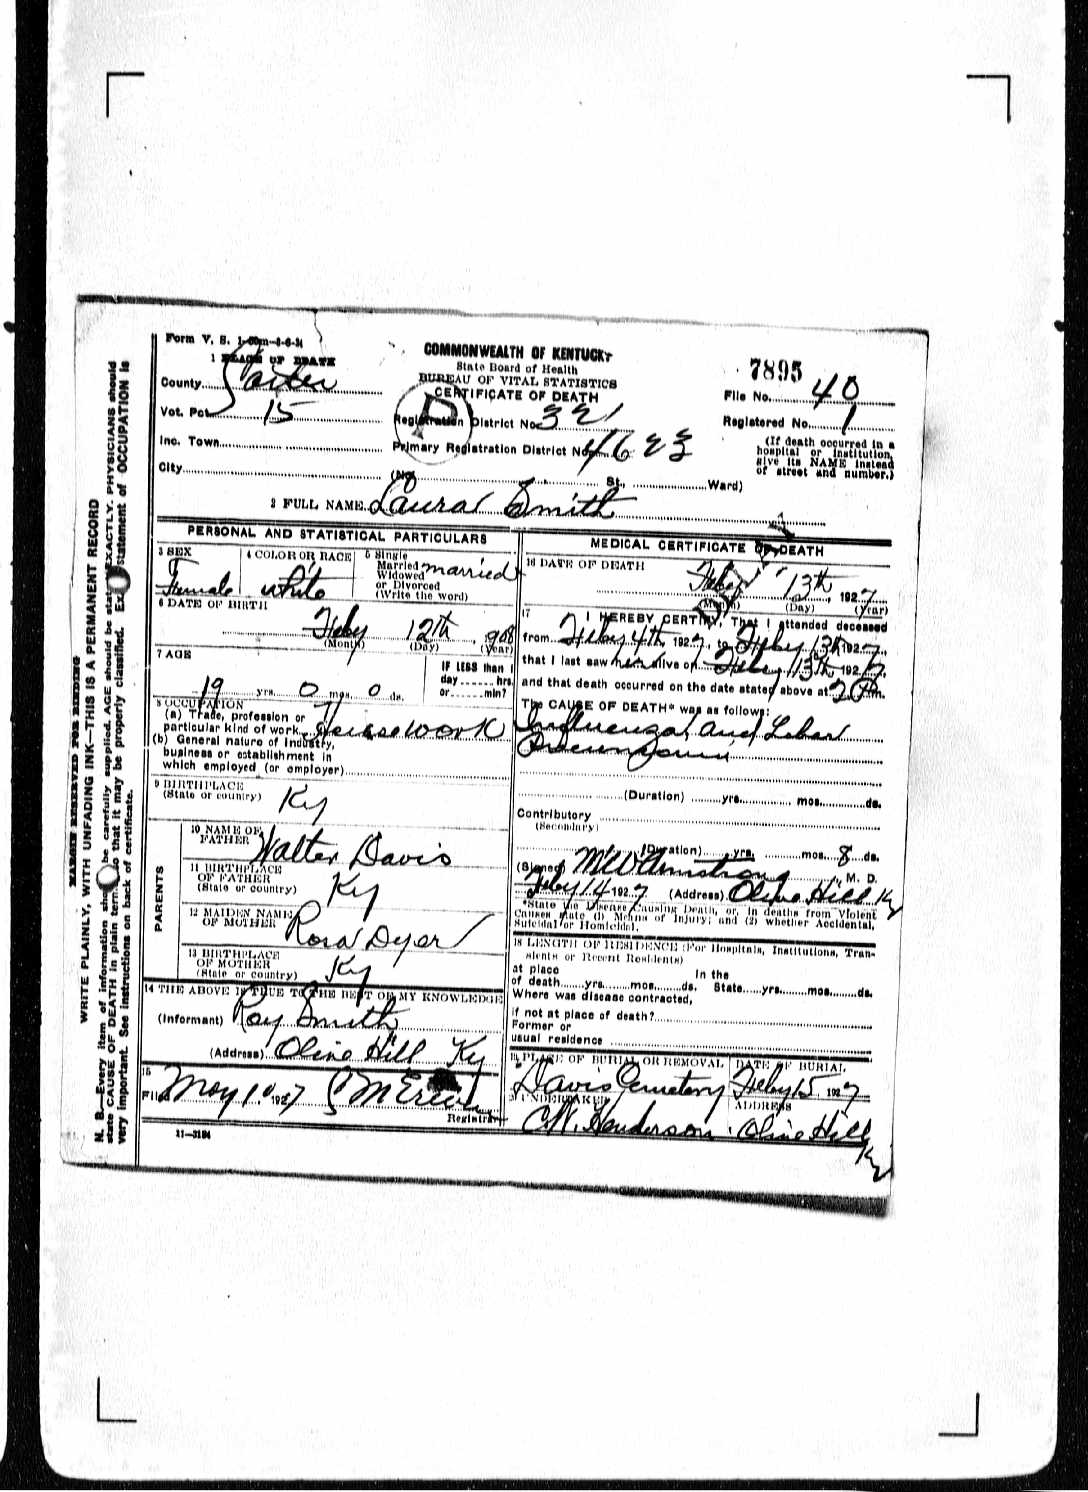 Form V. S. 1-50m-8-6-24
COMMONWEALTH OF KENTUCKY
State Board of Health
BUREAU OF VITAL STATISTICS
CERTIFICATE OF DEATH
7895
1 PLACE OF DEATH
County Carter
File No. 40
Vot. Pct. 15
Registration District No. 321
Registered No. 1
Inc. Town
Primary Registration District No. 4623
(If death occurred in a hospital or institution, give its NAME instead of street and number.)
City (No. St., Ward)
P
2 FULL NAME Laura Smith
PERSONAL AND STATISTICAL PARTICULARS
3 SEX Female
4 COLOR OR RACE white
5 Single Married Widowed or Divorced (Write the word) married
6 DATE OF BIRTH
Feby 12th, 1908
(Month) (Day) (Year)
7 AGE
19 yrs. 0 mos. 0 ds.
IF LESS than 1 day hrs. or min?
8 OCCUPATION
(a) Trade, profession or particular kind of work Housework
(b) General nature of Industry, business or establishment in which employed (or employer)
9 BIRTHPLACE
(State or country) Ky
PARENTS
10 NAME OF FATHER Walter Davis
11 BIRTHPLACE OF FATHER (State or country) Ky
12 MAIDEN NAME OF MOTHER Rosa Dyer
13 BIRTHPLACE OF MOTHER (State or country) Ky
14 THE ABOVE IS TRUE TO THE BEST OF MY KNOWLEDGE
(Informant) Roy Smith
(Address) Olive Hill Ky
15
Filed May 10 1927
Registrar
11-3184
MEDICAL CERTIFICATE OF DEATH
16 DATE OF DEATH
Feby 13th, 1927
(Month) (Day) (Year)
17 I HEREBY CERTIFY, That I attended deceased
from Feby 4th, 1927, to Feby 13th, 1927,
that I last saw her alive on Feby 13th, 1927,
and that death occurred on the date stated above at 2 P m.
The CAUSE OF DEATH* was as follows:
Influenza and Lobar
Pneumonia
(Duration) yrs. mos. ds.
Contributory
(Secondary)
(Duration) yrs. mos. 8 ds.
(Signed) M W Armstrong, M. D.
Feby 14, 1927 (Address) Olive Hill Ky
*State the Disease Causing Death, or, in deaths from Violent
Causes state (1) Means of Injury; and (2) whether Accidental,
Suicidal or Homicidal.
18 LENGTH OF RESIDENCE (For Hospitals, Institutions, Transients or Recent Residents)
at place of death yrs. mos. ds. In the State yrs. mos. ds.
Where was disease contracted,
if not at place of death?
Former or
usual residence
19 PLACE OF BURIAL OR REMOVAL Davis Cemetery
DATE OF BURIAL Feby 15, 1927
20 UNDERTAKER C.W. Henderson
ADDRESS Olive Hill Ky
MARGIN RESERVED FOR BINDING
WRITE PLAINLY, WITH UNFADING INK—THIS IS A PERMANENT RECORD
N. B.—Every item of information should be carefully supplied. AGE should be stated EXACTLY. PHYSICIANS should
state CAUSE OF DEATH in plain terms, so that it may be properly classified. Exact statement of OCCUPATION is
very important. See instructions on back of certificate.